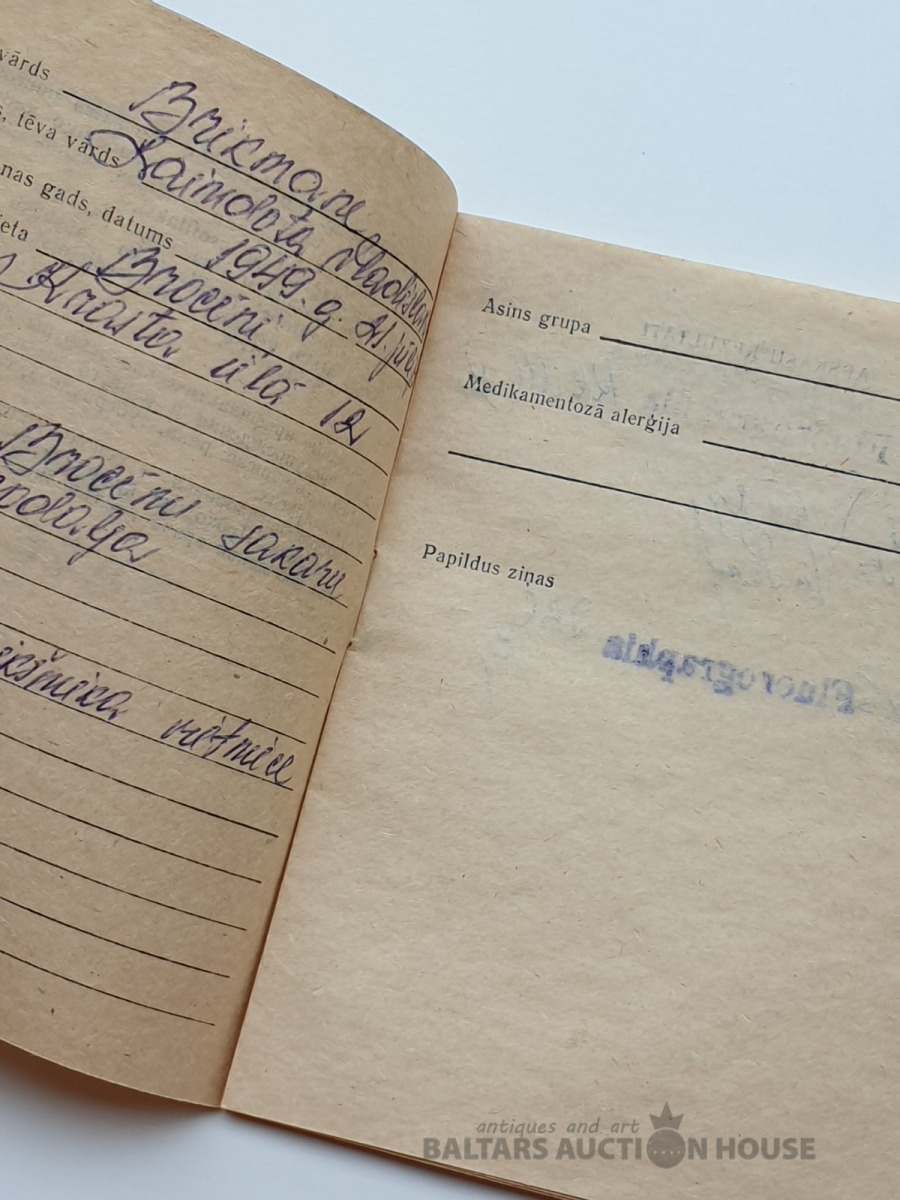 vārds Brikmane
s, tēva vārds Raimonta Vladislav
nas gads, datums 1949. g. 21. jūl
ieta Brocēni
Krasta ielā 12
Brocēnu sakaru
nodaļa
vietniece
Asins grupa
Medikamentozā alerģija
Papildus ziņas
Fluorographia
antiques and art
BALTARS AUCTION HOUSE